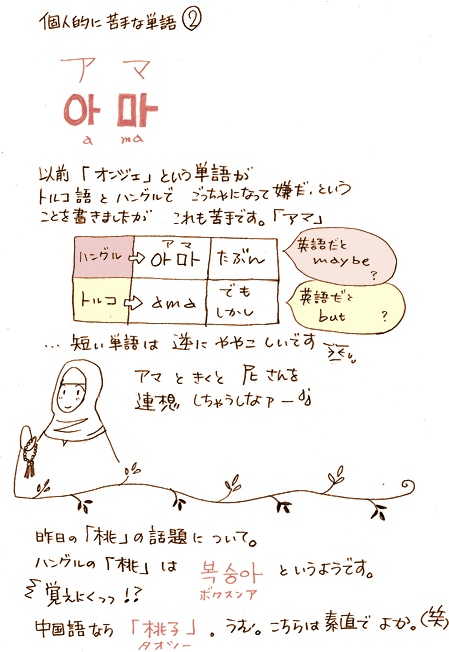 個人的に苦手な単語②
アマ
아마
a ma
以前「オンジェ」という単語が
トルコ語とハングルで ごっちゃになって嫌だ、という
ことを書きましたが これも苦手です。「アマ」
ハングル
アマ
아마
たぶん
英語だと
maybe
?
トルコ
ama
でも
しかし
英語だと
but ?
…短い単語は 逆に ややこしいです
アマ ときくと 尼さんを
連想 しちゃうしなァー
昨日の「桃」の話題について。
ハングルの「桃」は 복숭아 というようです。
ボクスンア
覚えにくっっ!?
中国語なら「桃子」。うむ。こちらは素直でよか。(笑)
タオツー